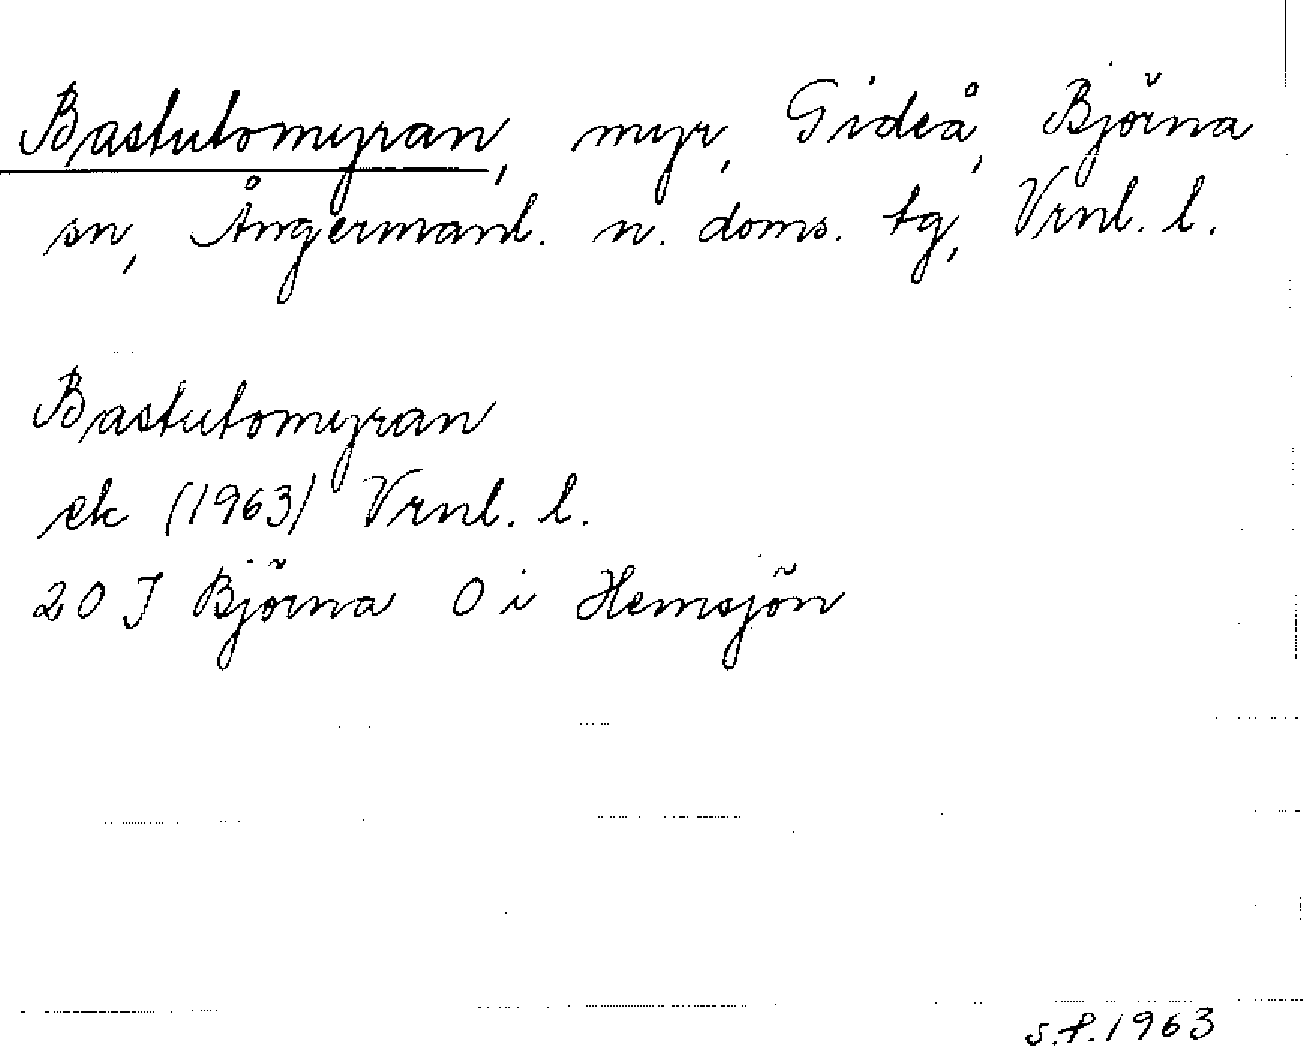 Bastutomyran, myr, Gideå, Björna
sn, Ångermanl. n. doms. tg, Vrnl. l.
Bastutomyran
ek (1963) Vrnl. l.
20 J Björna O i Hemsjön
S.P. 1963